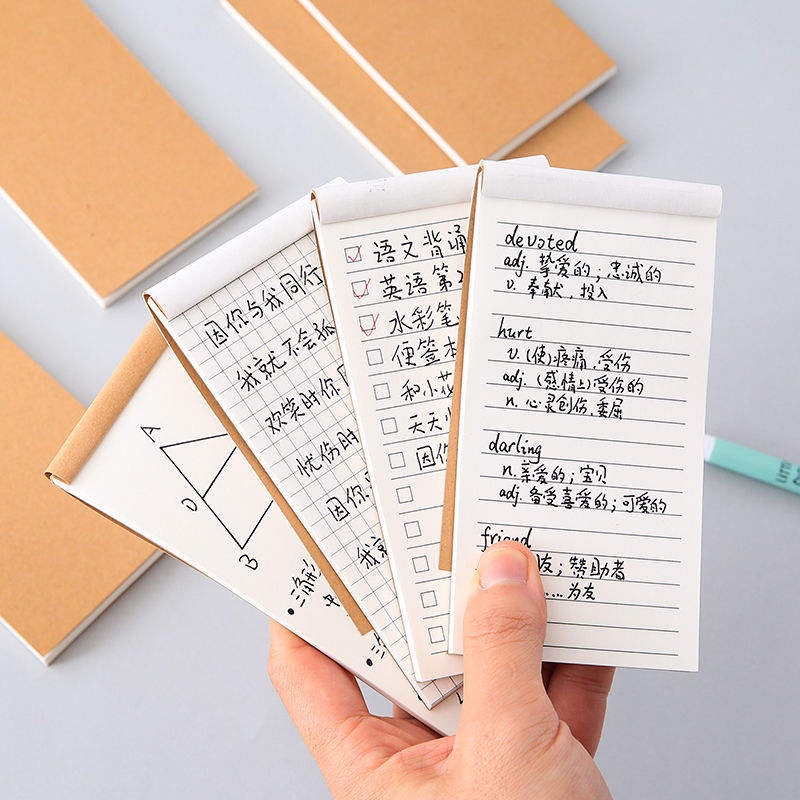 devoted
adj. 挚爱的；忠诚的
v. 奉献，投入
hurt
v. (使)疼痛，受伤
adj. (感情上)受伤的
n. 心灵创伤，委屈
darling
n. 亲爱的；宝贝
adj. 备受喜爱的；可爱的
friend
友；赞助者
……为友
语文背诵
英语第
水彩笔
便签本
和小花
天天
因你
因你与我同行
我就不会孤
欢笑时你
忧伤时
因你
我就
A
D
B
三角形
中
三
LITT